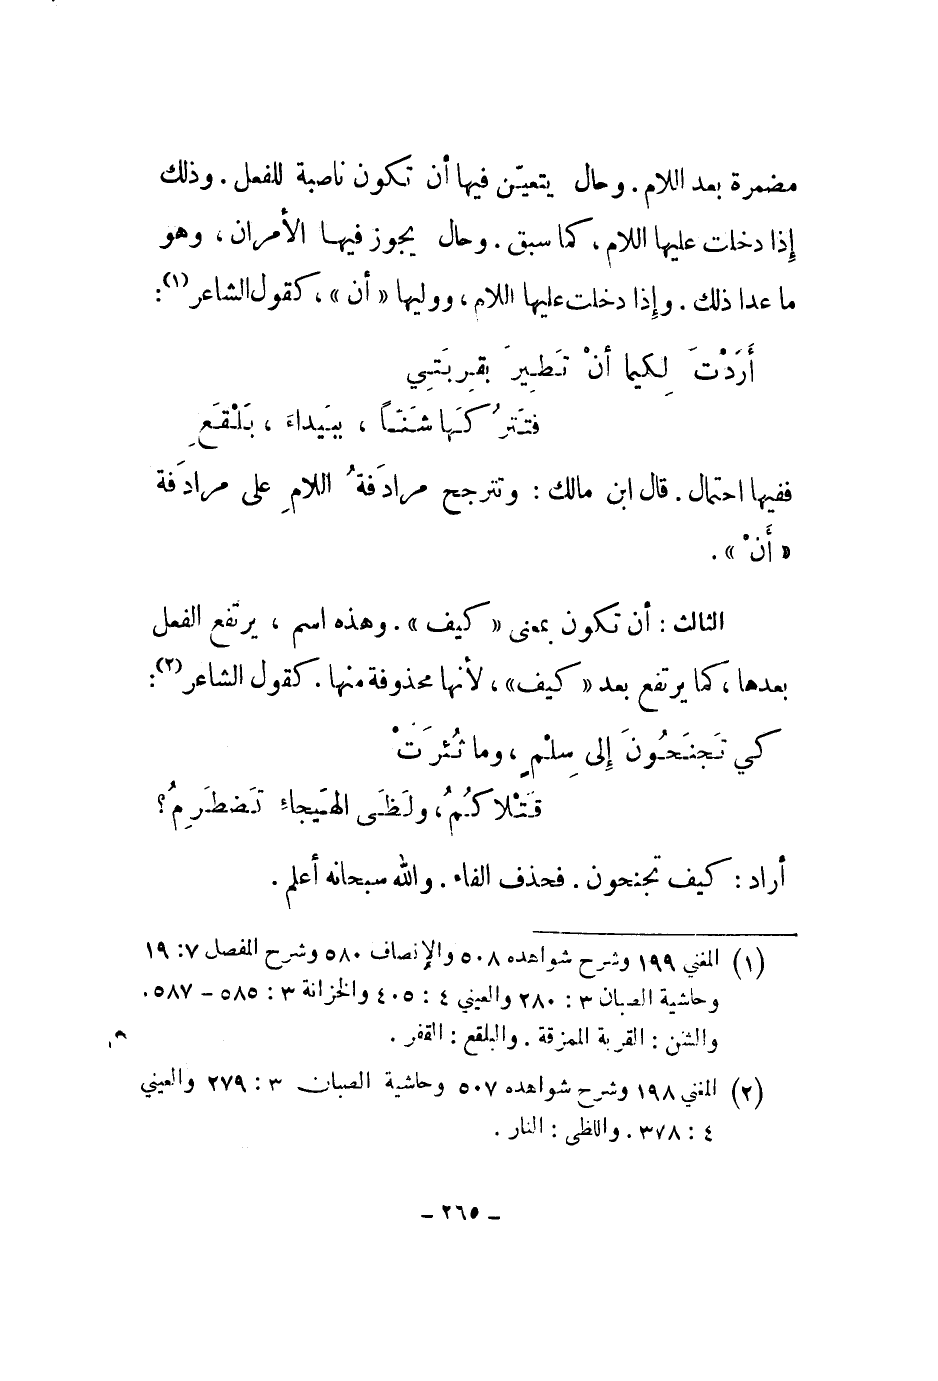 مضمرة بعد اللام . وحال يتعيّن فيها أن تكون ناصبة للفعل . وذلك
إذا دخلت عليها اللام ، كما سبق . وحال يجوز فيها الأمران ، وهو
ما عدا ذلك . وإذا دخلت عليها اللام ، ووليها « أن » ، كقول الشاعر (١) :
أَرَدْتَ لِكيما أنْ تَطِيرَ بقِربَتِي
فتَترُكَها شَنّاً ، ببَيداءَ ، بَلْقَعِ
ففيها احتمال . قال ابن مالك : وتترجح مرادَفةُ اللامِ على مرادَفة
« أَنْ » .
الثالث : أن تكون بمعنى « كيف » . وهذه اسم ، يرتفع الفعل
بعدها ، كما يرتفع بعد « كيف » ، لأنها محذوفة منها . كقول الشاعر (٢) :
كي تَجنَحُونَ إلى سِلْمٍ ، وما ثُئرَتْ
قَتْلاكُمُ ، ولَظَى الهَيجاءِ تَضطَرِمُ ؟
أراد : كيف تجنحون . فحذف الفاء . والله سبحانه أعلم .
(١) المغني ١٩٩ وشرح شواهده ٥٠٨ والإنصاف ٥٨٠ وشرح المفصل ٧ : ١٩
وحاشية الصبان ٣ : ٢٨٠ والعيني ٤ : ٤٠٥ والخزانة ٣ : ٥٨٥ – ٥٨٧ .
والشن : القربة الممزقة . والبلقع : القفر .
(٢) المغني ١٩٨ وشرح شواهده ٥٠٧ وحاشية الصبان ٣ : ٢٧٩ والعيني
٤ : ٣٧٨ . واللظى : النار .
– ٢٦٥ –